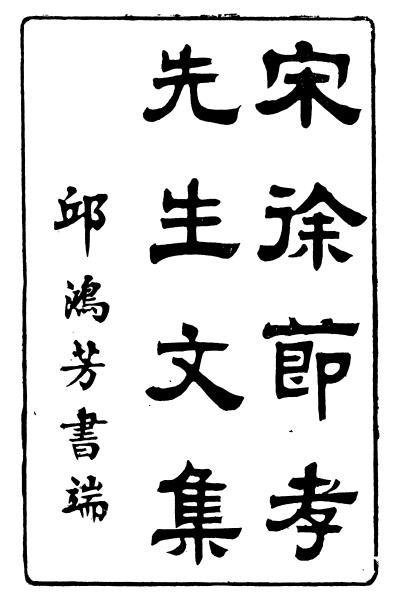 宋徐節孝
先生文集
邱鴻芳書端